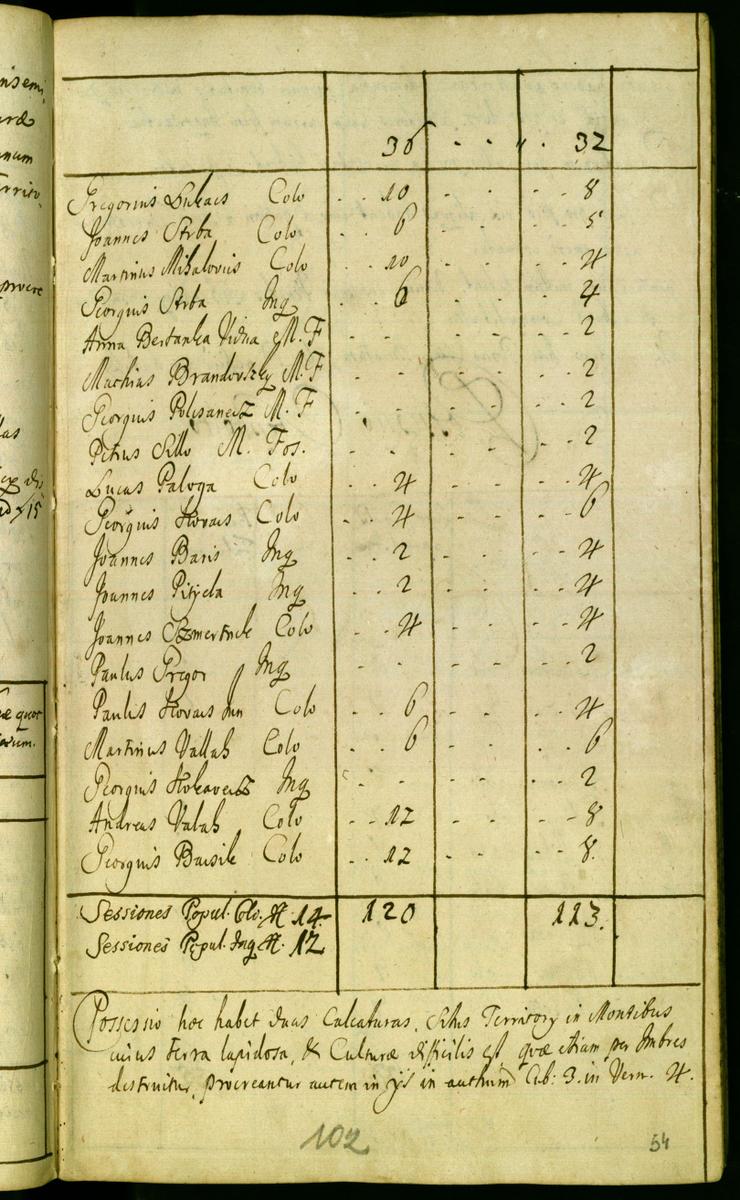 36 - - " - 32
Gregorius Lukacs Colo - - 10 - - - - 8
Joannes Strba Colo - - 6 - - - - 5
Martinus Mihalovics Colo - - 10 - - - - 4
Georgius Strba Inq - - 6 - - - - 4
Anna Bertanka Vidua M. F - - - - - - 2
Mathias Brandovszky M. F - - - - - - 2
Georgius M. F - - - - - - 2
Petrus Sillo M. Fos. - - - - - - 2
Lucas Paloga Colo - - 4 - - - - 4
Georgius Kovacs Colo - - 4 - - - - 6
Joannes Baris Inq - - 2 - - - - 4
Joannes Inq - - 2 - - - - 4
Joannes Colo - - 4 - - - - 4
Paulus Gregor Inq - - - - - - 2
Paulus Kovacs Jun Colo - - 6 - - - - 4
Martinus Vallah Colo - - 6 - - - - 6
Georgius Inq - - - - - - 2
Andreas Valah Colo - - 12 - - - - 8
Georgius Colo - - 12 - - - - 8.
Sessiones Popul. Clo. N. 14. 120 113.
Sessiones Popul. Inq N. 12
Possessio hoc habet duas Calcaturas, Situs Territory in Montibus
cuius terra lapidosa, & Culturæ difficilis est, quæ etiam per Imbres
destruitur, procreantur autem in ijs in authum Cub: 3. in Vern. 4.
102
54